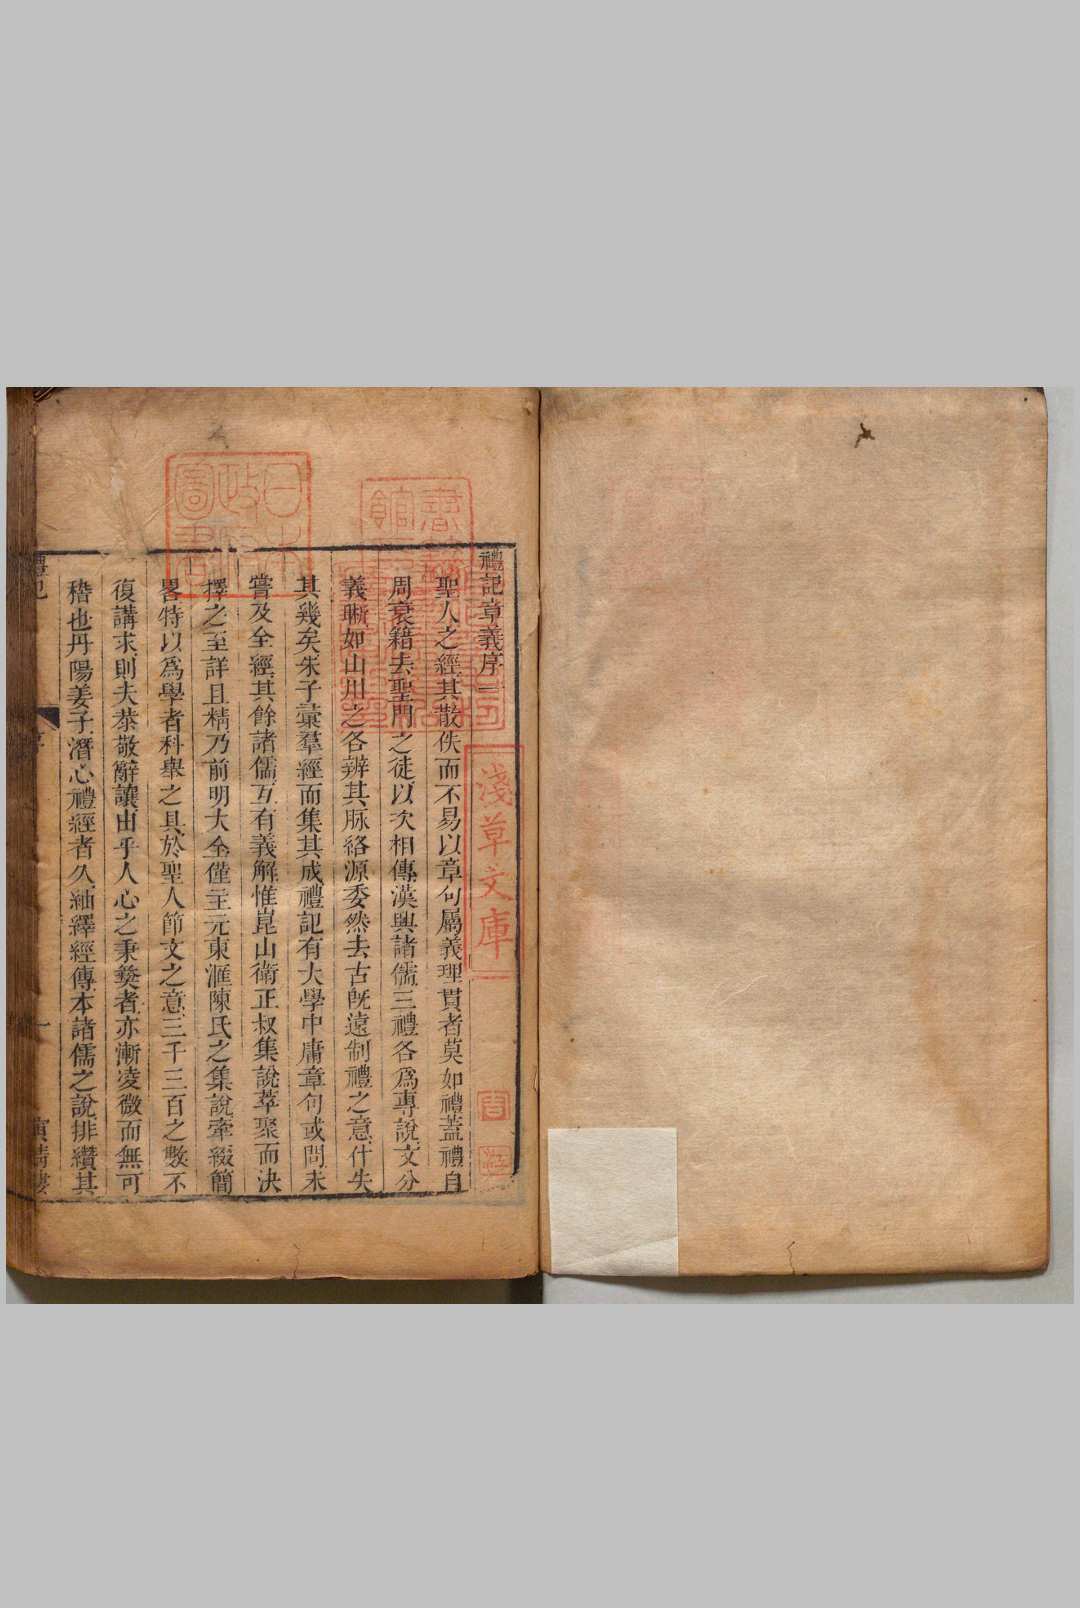 禮記章義序一
聖人之經其散佚而不易以章句屬義理貫者莫如禮蓋禮自
周衰籍去聖門之徒以次相傳漢興諸儒三禮各爲專說文分
義晰如山川之各辨其脉絡源委然去古旣遠制禮之意什失
其幾矣朱子彙羣經而集其成禮記有大學中庸章句或問未
嘗及全經其餘諸儒互有義解惟崑山衛正叔集說萃聚而決
擇之至詳且精乃前明大全僅主元東滙陳氏之集說牽綴簡
畧特以爲學者科舉之具於聖人節文之意三千三百之數不
復講求則夫恭敬辭讓由乎人心之秉彝者亦漸凌微而無可
稽也丹陽姜子潛心禮經者久紬繹經傳本諸儒之說排纘其
禮記
序
一
寅清樓
淺草文庫
日本
政府
圖書